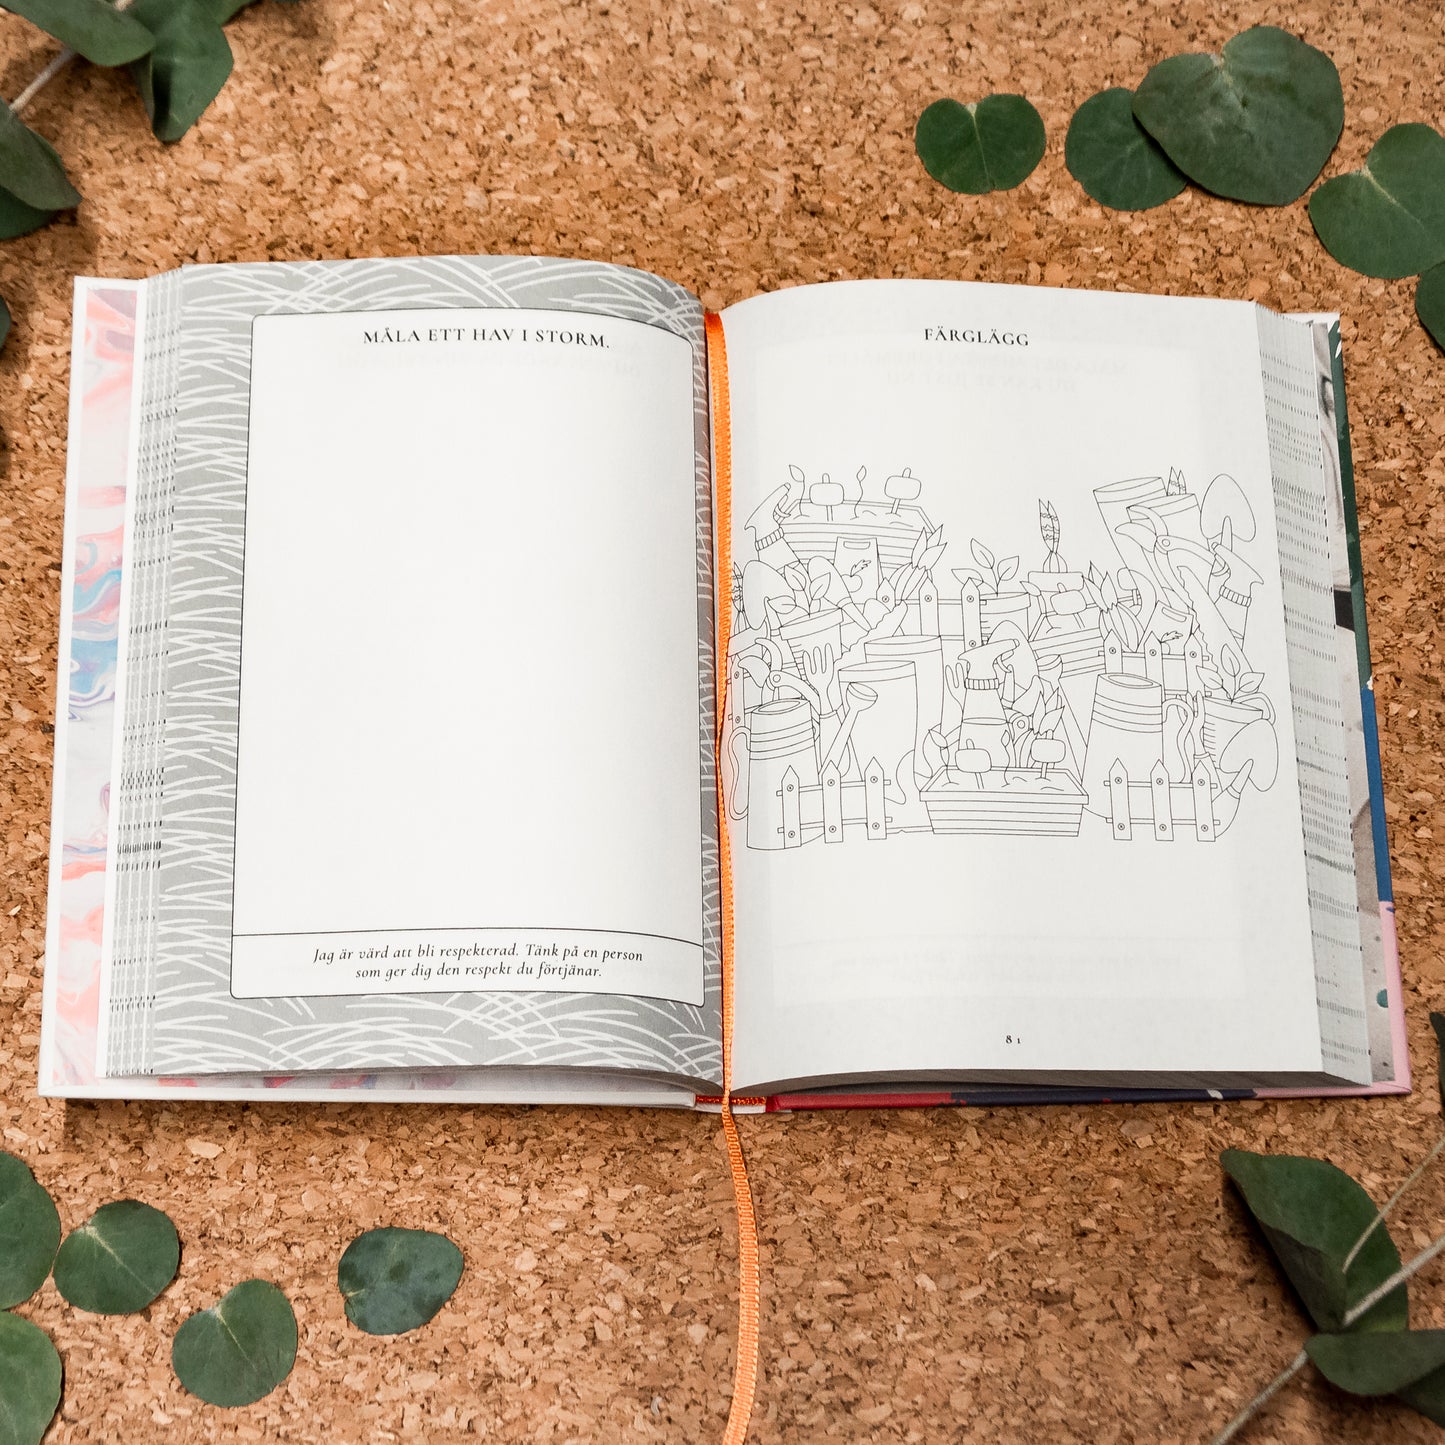 MÅLA ETT HAV I STORM.
Jag är värd att bli respekterad. Tänk på en person
som ger dig den respekt du förtjänar.
FÄRGLÄGG
81